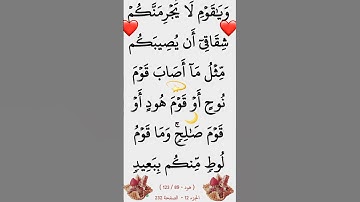 وَيَٰقَوْمِ لَا يَجْرِمَنَّكُمْ
شِقَاقِىٓ أَن يُصِيبَكُم
مِّثْلُ مَآ أَصَابَ قَوْمَ
نُوحٍ أَوْ قَوْمَ هُودٍ أَوْ
قَوْمَ صَٰلِحٍۚ وَمَا قَوْمُ
لُوطٍ مِّنكُم بِبَعِيدٍ
( هود - 89 / 123 )
الجزء 12 - الصفحة 232